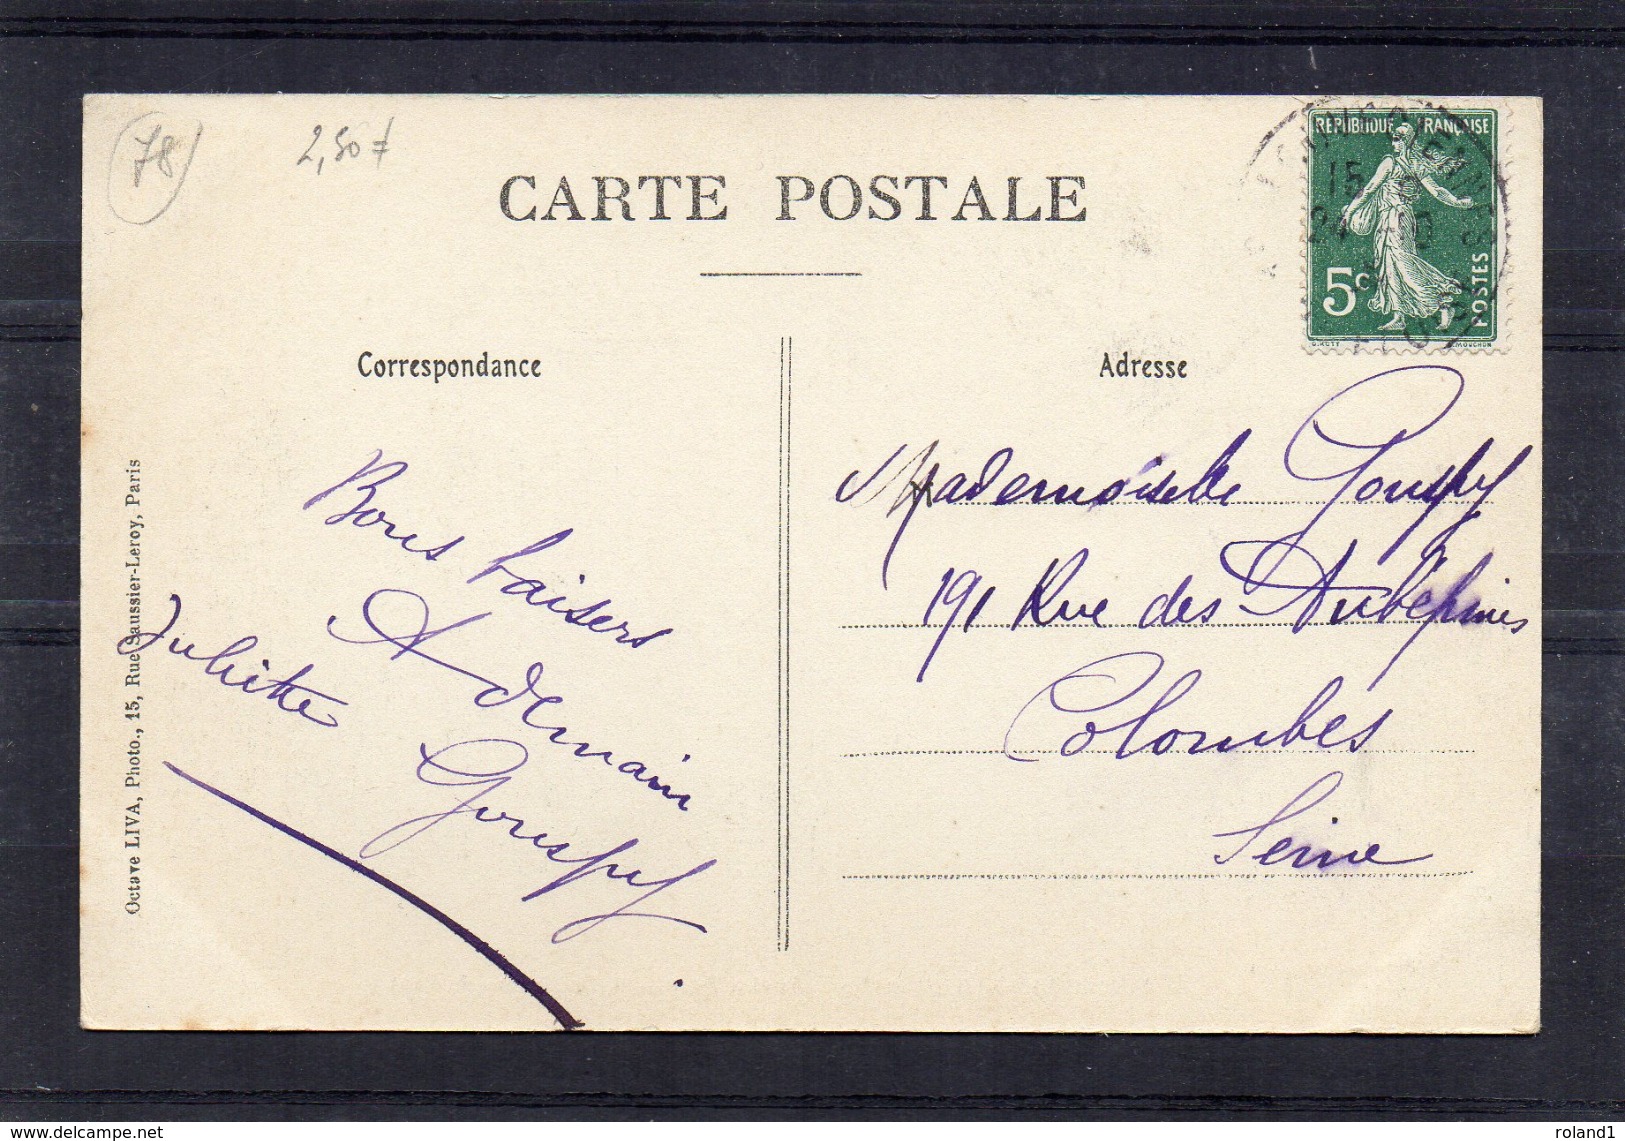 78
2,50 F
CARTE POSTALE
REPUBLIQUE FRANÇAISE
15
24 - 10
5c
POSTES
O. ROTY
MOUCHON
Correspondance
Adresse
Bons baisers
A demain
Juliette
Mademoiselle
191 Rue des Aubépines
Colombes
Seine
Octave LIVA, Photo., 15, Rue Saussier-Leroy, Paris
delcampe.net
roland1